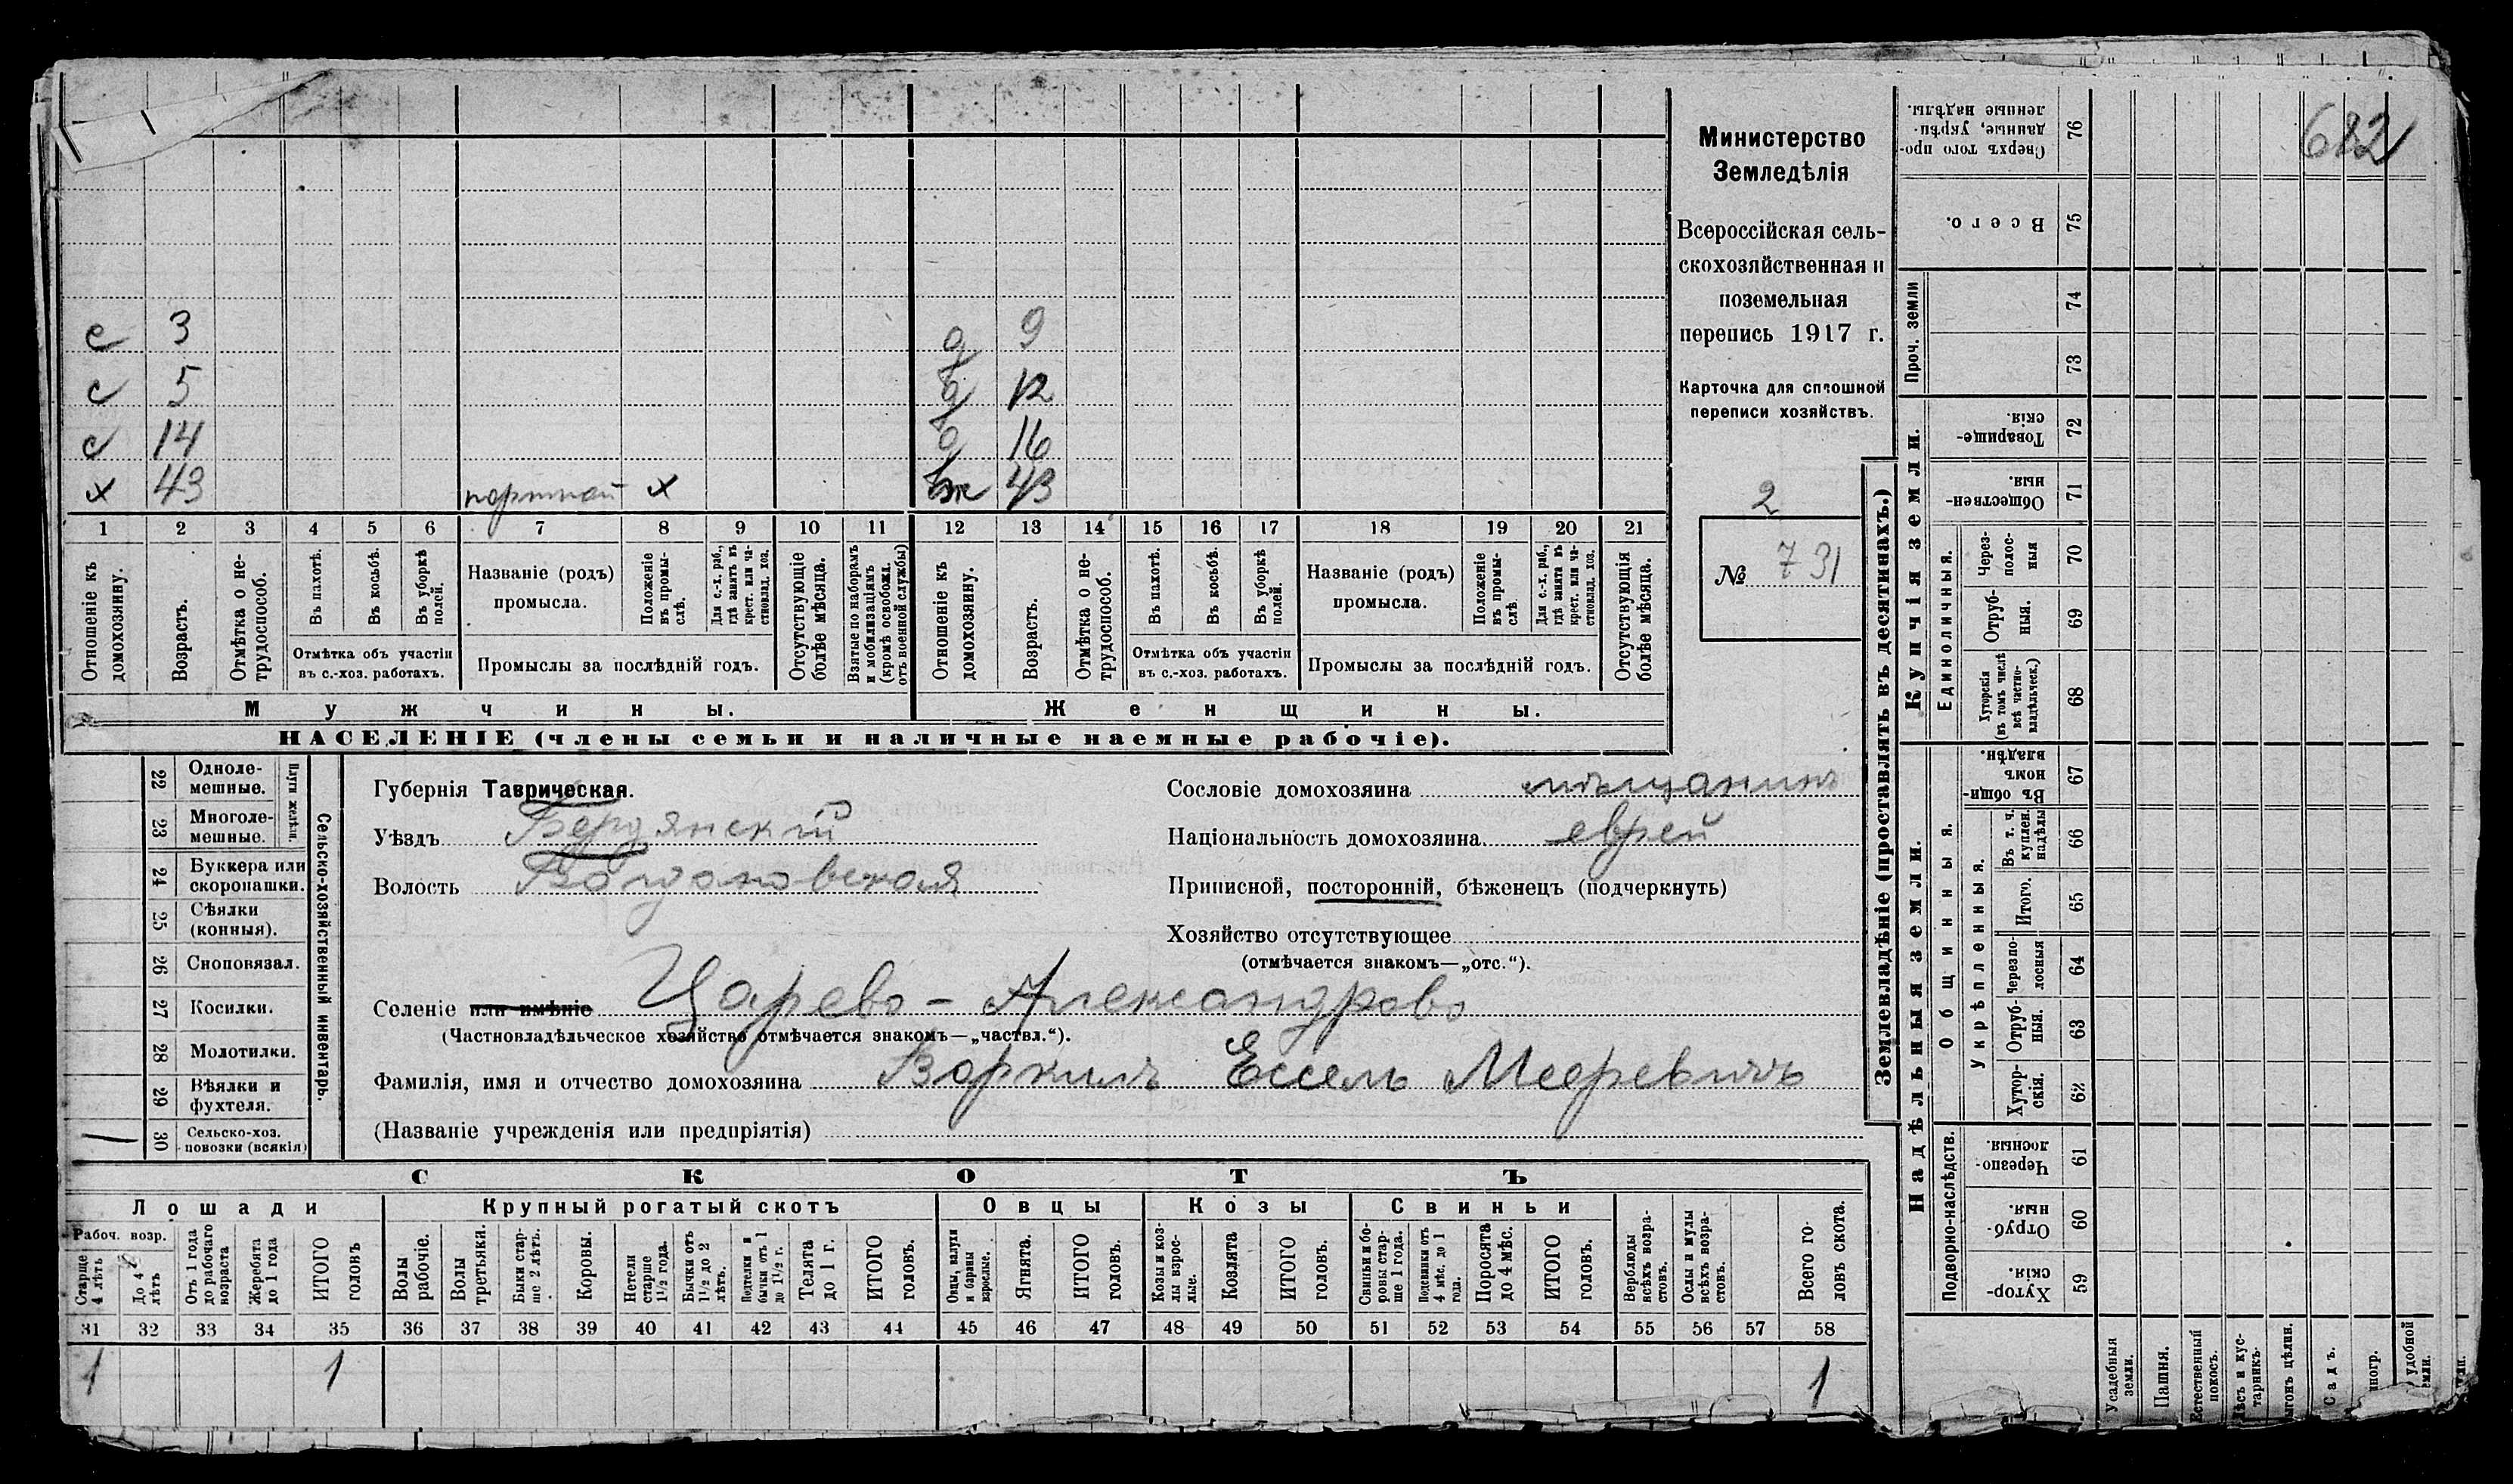 682
Министерство
Земледѣлія
Всероссійская сель-
скохозяйственная и
поземельная
перепись 1917 г.
Карточка для сплошной
переписи хозяйствъ.
2
№ 731
с 3 д 9
с 5 д 12
с 14 д 16
х 43 портной х ж 43
1 2 3 4 5 6 7 8 9 10 11 12 13 14 15 16 17 18 19 20 21
Отношеніе къ домохозяину.
Возрастъ.
Отмѣтка о не-трудоспособ.
Въ пахотѣ.
Въ косьбѣ.
Въ уборкѣ полей.
Отмѣтка объ участіи
въ с.-хоз. работахъ.
Названіе (родъ)
промысла.
Положеніе въ промы-слѣ.
Для с.-х. раб., гдѣ занятъ въ крест. или ча-стновлад. хоз.
Промыслы за послѣдній годъ.
Отсутствующіе болѣе мѣсяца.
Взятые по наборамъ и мобилизаціямъ (кромѣ освобожд. отъ военной службы)
Отношеніе къ домохозяину.
Возрастъ.
Отмѣтка о не-трудоспособ.
Въ пахотѣ.
Въ косьбѣ.
Въ уборкѣ полей.
Отмѣтка объ участіи
въ с.-хоз. работахъ.
Названіе (родъ)
промысла.
Положеніе въ промы-слѣ
Для с.-х. раб., гдѣ занята въ крест. или ча-стновлад. хоз.
Промыслы за послѣдній годъ.
Отсутствующія болѣе мѣсяца.
Мужчины. Женщины.
НАСЕЛЕНІЕ (члены семьи и наличные наемные рабочіе).
Сельско-хозяйственный инвентарь.
Плуги желѣзн.
22 Одноле-мешные.
23 Многоле-мешные.
24 Буккера или скоропашки.
25 Сѣялки (конныя).
26 Сноповязал.
27 Косилки.
28 Молотилки.
29 Вѣялки и фухтеля.
1 30 Сельско-хоз. повозки (всякія)
Губернія Таврическая.
Уѣздъ Бердянскій
Волость Богдановская
Сословіе домохозяина мѣщанинъ
Національность домохозяина еврей
Приписной, посторонній, бѣженецъ (подчеркнуть)
Хозяйство отсутствующее
(отмѣчается знакомъ—„отс.“).
Селеніе или имѣніе Царево-Александрово
(Частновладѣльческое хозяйство отмѣчается знакомъ—„частвл.“).
Фамилія, имя и отчество домохозяина Воркинъ Ессель Мееревичъ
(Названіе учрежденія или предпріятія)
СКОТЪ
Лошади Крупный рогатый скотъ Овцы Козы Свиньи
Рабоч. возр.
Старше 4 лѣтъ
До 4 лѣтъ
Отъ 1 года до рабочаго возраста
Жеребята до 1 года
ИТОГО головъ
Волы рабочіе.
Волы третьяки.
Быки стар-ше 2 лѣтъ.
Коровы.
Нетели старше 1½ года.
Бычки отъ 1½ до 2 лѣтъ.
Подтелки и бычки отъ 1 до 1½ г.
Телята до 1 г.
ИТОГО головъ.
Овцы, валухи и бараны взрослые.
Ягнята.
ИТОГО головъ.
Козы и коз-лы взрос-лые.
Козлята
ИТОГО головъ.
Свиньи и бо-ровы стар-ше 1 года.
Подсвинки отъ 4 мѣс. до 1 года.
Поросята до 4 мѣс.
ИТОГО головъ.
Верблюды всѣхъ возра-стовъ.
Ослы и мулы всѣхъ возра-стовъ.
Всего го-ловъ скота.
31 32 33 34 35 36 37 38 39 40 41 42 43 44 45 46 47 48 49 50 51 52 53 54 55 56 57 58
1 1 1
Землевладѣніе (проставлять въ десятинахъ.)
Купчія земли.
Сверхъ того про-данные, укрѣп-ленные надѣлы. 76
Всего. 75
Проч. земли
74
73
Товарище-скія. 72
Обществен-ныя. 71
Единоличныя.
Черезполос-ныя 70
Отруб-ныя. 69
Хуторскія (въ томъ числѣ всѣ частно-владѣльческ.) 68
Надѣльныя земли.
Общинныя.
Въ общи-номъ владѣн. 67
Укрѣпленныя.
Въ т. ч. куплен. надѣлы 66
Итого. 65
Черезпо-лосныя 64
Отруб-ныя. 63
Хутор-скія. 62
Подворно-наслѣдств.
Черезпо-лосныя. 61
Отруб-ныя. 60
Хутор-скія. 59
Усадебныя земли.
Пашня.
Естественный покосъ.
Лѣсъ и кус-тарникъ.
выгонъ цѣлин.
Садъ.
виногр.
удобной земли.